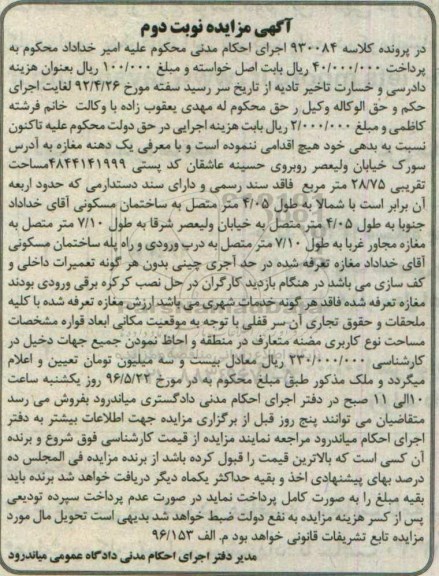 آگهی مزایده نوبت دوم
در پرونده کلاسه ۹۳۰۰۸۴ اجرای احکام مدنی محکوم علیه امیر خداداد محکوم به
پرداخت ۴۰/۰۰۰/۰۰۰ ریال بابت اصل خواسته و مبلغ ۱۰۰/۰۰۰ ریال بعنوان هزینه
دادرسی و خسارت تاخیر تادیه از تاریخ سر رسید سفته مورخ ۹۲/۴/۲۶ لغایت اجرای
حکم و حق الوکاله وکیل ر حق محکوم له مهدی یعقوب زاده با وکالت خانم فرشته
کاظمی و مبلغ ۲/۰۰۰/۰۰۰ ریال بابت هزینه اجرایی در حق دولت محکوم علیه تاکنون
نسبت به بدهی خود هیچ اقدامی ننموده است و با معرفی یک دهنه مغازه به آدرس
سورک خیابان ولیعصر روبروی حسینه عاشقان کد پستی ۴۸۴۴۱۴۱۹۹۹مساحت
تقریبی ۲۸/۷۵ متر مربع فاقد سند رسمی و دارای سند دستدارمی که حدود اربعه
آن برابر است با شمالا به طول ۴/۰۵ متر متصل به ساختمان مسکونی آقای خداداد
جنوبا به طول ۴/۰۵ متر متصل به خیابان ولیعصر شرقا به طول ۷/۱۰ متر متصل به
مغازه مجاور غربا به طول ۷/۱۰ متر متصل به درب ورودی و راه پله ساختمان مسکونی
آقای خداداد مغازه تعرفه شده در حد آجری چینی بدون هر گونه تعمیرات داخلی و
کف سازی می باشد در هنگام بازدید کارگران در حل نصب کرکره برقی ورودی بودند
مغازه تعرفه شده فاقد هر گونه خدمات شهری می باشد ارزش مغازه تعرفه شده با کلیه
ملحقات و حقوق تجاری آن سر قفلی با توجه به موقعیت مکانی ابعاد قواره مشخصات
مساحت نوع کاربری مضنه متعارف در منطقه و احاظ نمودن جمیع جهات دخیل در
کارشناسی ۲۳۰/۰۰۰/۰۰۰ ریال معادل بیست و سه میلیون تومان تعیین و اعلام
میگردد و ملک مذکور طبق مبلغ محکوم به در مورخ ۹۶/۵/۲۲ روز یکشنبه ساعت
۱۰الی ۱۱ صبح در دفتر اجرای احکام مدنی دادگستری میاندرود بفروش می رسد
متقاضیان می توانند پنج روز قبل از برگزاری مزایده جهت اطلاعات بیشتر به دفتر
اجرای احکام میاندرود مراجعه نمایند مزایده از قیمت کارشناسی فوق شروع و برنده
آن کسی است که بالاترین قیمت را قبول کرده باشد از برنده مزایده فی المجلس ده
درصد بهای پیشنهادی اخذ و بقیه حداکثر یکماه دیگر دریافت خواهد شد برنده باید
بقیه مبلغ را به صورت کامل پرداخت نماید در صورت عدم پرداخت سپرده تودیعی
پس از کسر هزینه مزایده به نفع دولت ضبط خواهد شد بدیهی است تحویل مال مورد
مزایده تابع تشریفات قانونی خواهد بود م. الف ۹۶/۱۵۳
مدیر دفتر اجرای احکام مدنی دادگاه عمومی میاندرود